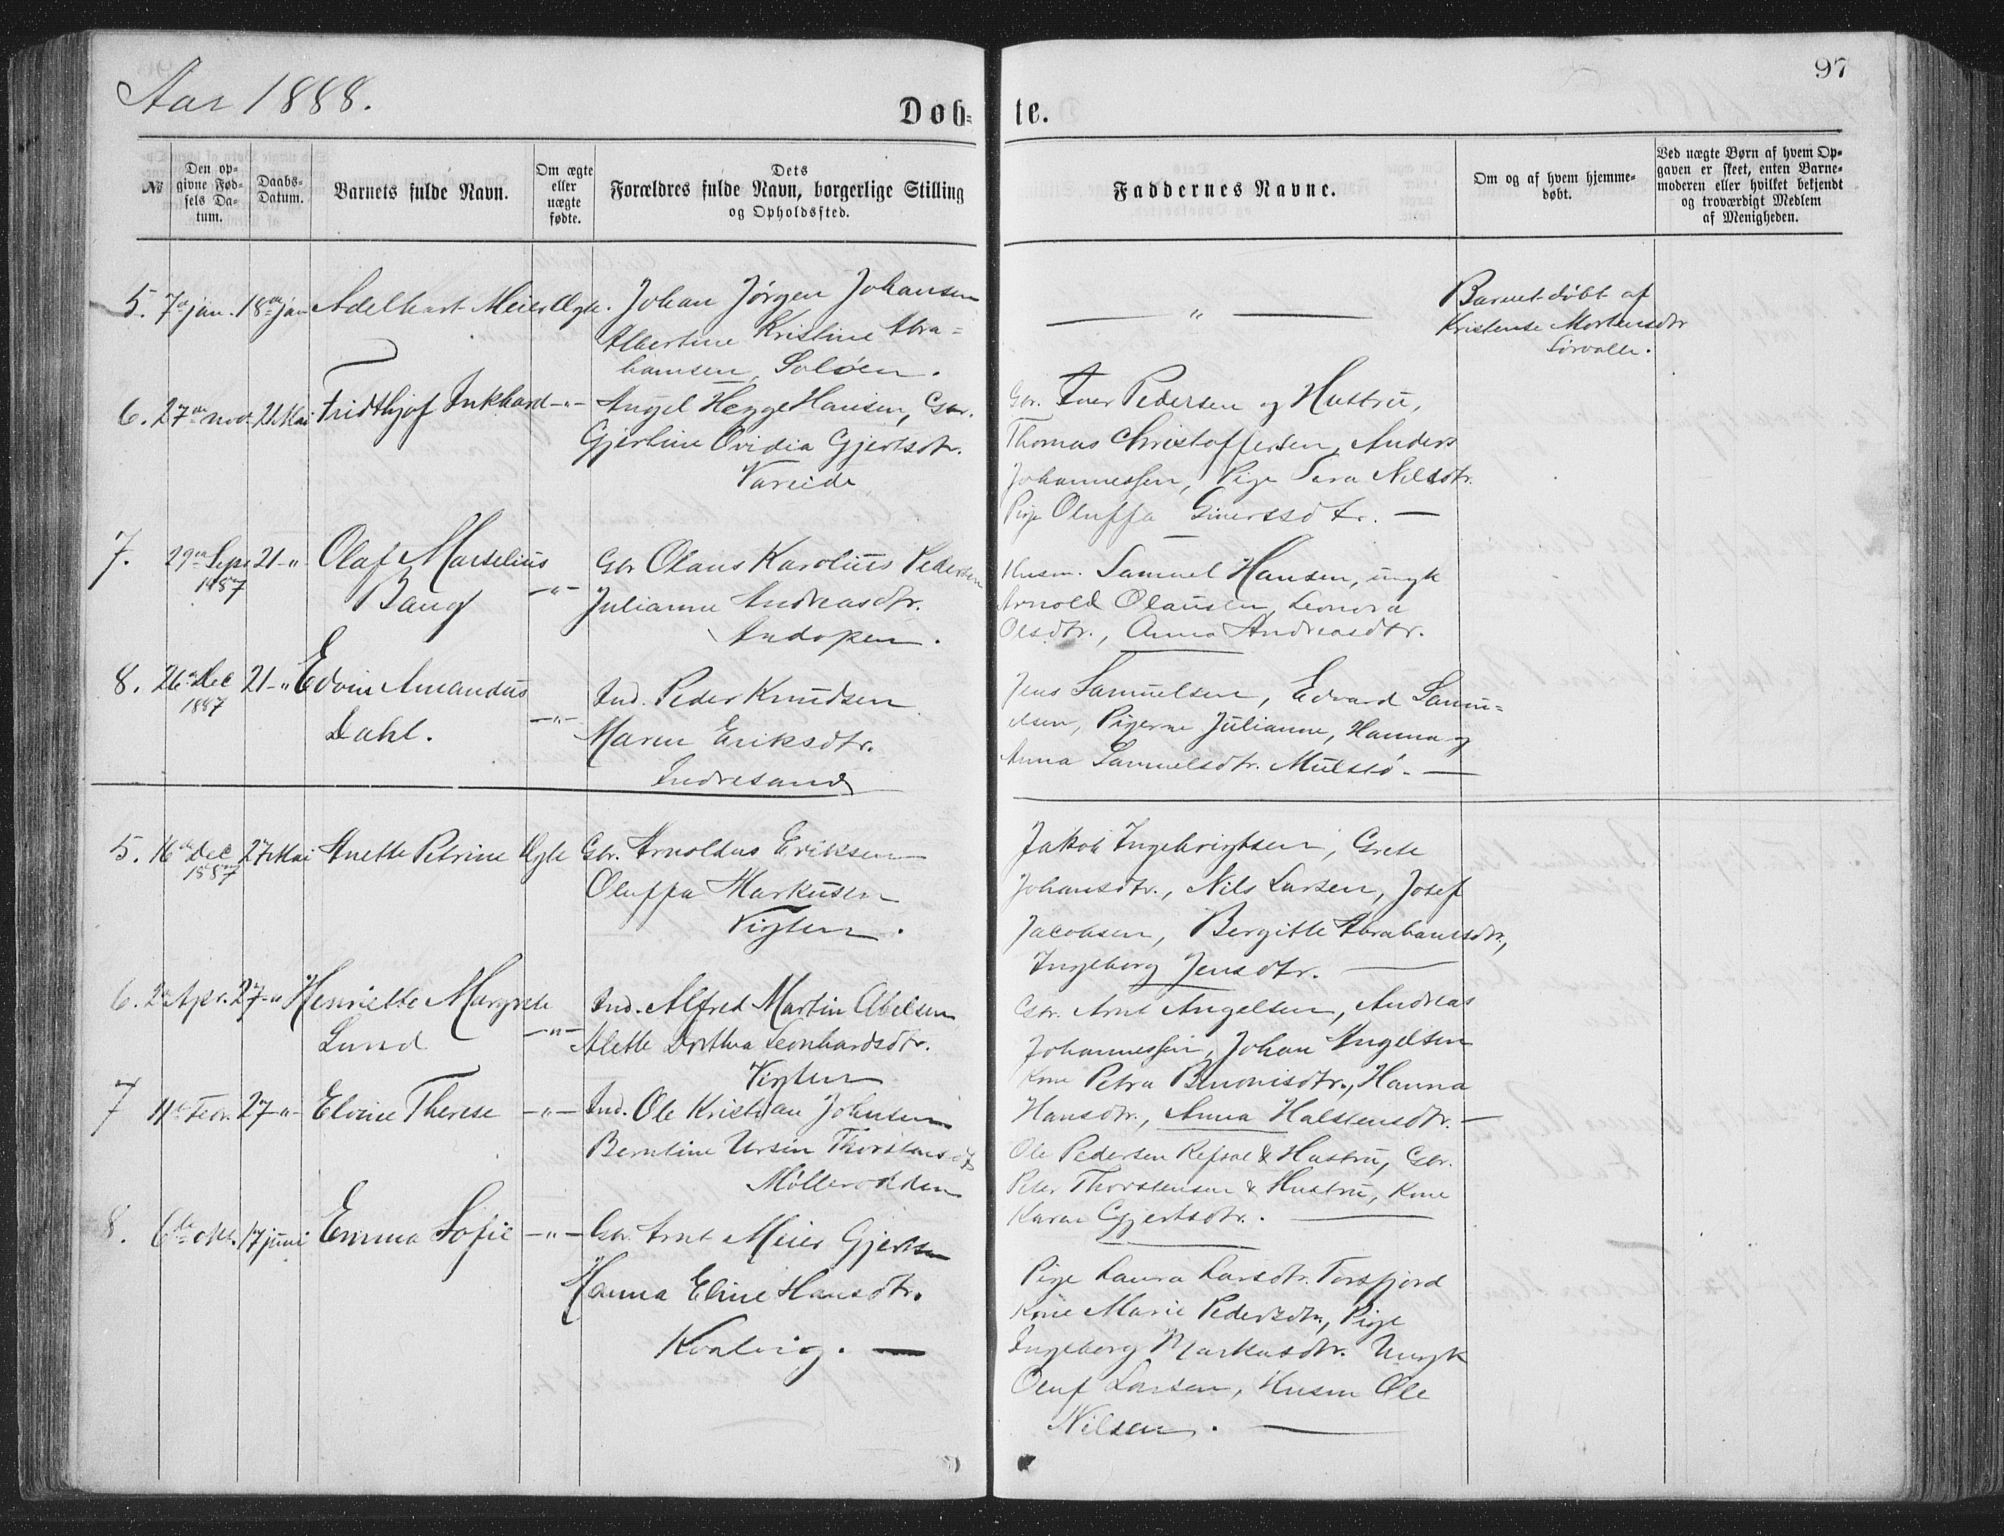 Aar 1888.
Døb-
te.
97
№
Den op-
givne Fød-
sels Da-
tum.
Daabs-
Datum.
Barnets fulde Navn.
Om ægte
eller
uægte
fødte.
Dets
Forældres fulde Navn, borgerlige Stilling
og Opholdssted.
Faddernes Navne.
Om og af hvem hjemme-
døbt.
Ved uægte Børn af hvem Op-
gaven er skeet, enten Barne-
moderen eller hvilket bekjendt
og troværdigt Medlem
af Menigheden.
5. 7de jan. 18de jan Adelhart Meier Ægte. Johan Jørgen Johansen
Albertine Kristine Abra-
hamsen, Soløen.
— " —
Barnet døbt af
Kristense Mortensdtr
Sørvalle.
6. 27de nov. 21 Mai Fridthjof Inkhard -"- Angel Hegge Hansen, Gbr.
Gjertine Ovidia Gjertsdtr.
Vareide
Gbr. Iver Pedersen og Hustru,
Thomas Christoffersen, Anders
Johannessen, Pige Sara Nilsdtr.
Pige Oluffa Einersdtr. —
7. 29de Sept 1887 21 -"- Olaf Marselius
Bang -"-
Gbr Olaus Karolius Pedersen
Julianne Andreasdtr.
Andopen.
Husm. Samuel Hansen, ungk
Arnold Olausen, Leonora
Olsdtr., Anna Andreasdtr.
8. 26de Dec 1887 21 -"- Edvin Amandus
Dahl. -"-
Ind. Peder Knudsen
Maren Eriksdtr.
Indresand
Jens Samuelsen, Edvard Samu-
elsen, Pigerne Julianne, Hanna og
Anna Samuelsdtr. Mulstø. —
5. 16de Dec 1887 27 Mai Anette Petrine Ægte Gbr. Arnoldus Eriksen
Oluffa Markusen
Vigten.
Jakob Ingebrigtsen, Grete
Johansdtr., Nils Larsen, Josef
Jacobsen, Bergitte Abrahamsdtr.,
Ingeborg Jensdtr. —
6. 2de Apr. 27 -"- Henriette Margrete
Lund -"-
Ind. Alfred Martin Abelsen
Alette Dorthea Leonhardsdtr.
Vigten
Gbr. Arnt Angelsen, Andreas
Johannessen, Johan Angelsen
Kone Petra Benonisdtr., Hanna
Hansdtr., Anna Halstensdtr. —
7 11te Febr. 27 -"- Elvine Therese -"- Ind. Ole Kristian Johnsen
Berntine Ursin Thorstensdtr
Møllerodden
Ole Pedersen Refsal & Hustru, Gbr.
Peter Thorstensen & Hustru, Kone
Karen Gjertsdtr. —
8. 6te okt. 17 juni Emma Sofie -"- Gbr. Arnt Meier Gjertsen
Hanna Eline Hansdtr.
Kvalvig. —
Pige Laura Larsdtr. Torsfjord
Kone Marie Pedersdtr., Pige
Ingeborg Markusdtr. Ungk
Oluf Larsen, Husm Ole
Nilsen. —